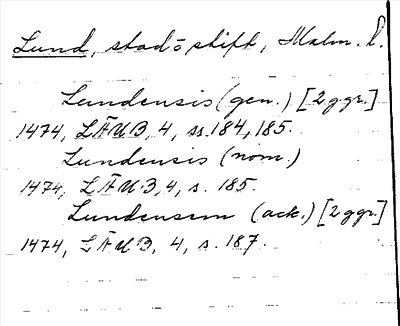 Lund, stad o stift, Malm. l.
Lundensis (gen.) [2 ggr.]
1474, LÄUB, 4, ss. 184, 185.
Lundensis (nom.)
1474, LÄUB, 4, s. 185.
Lundensem (ack.) [2 ggr.]
1474, LÄUB, 4, s. 187.